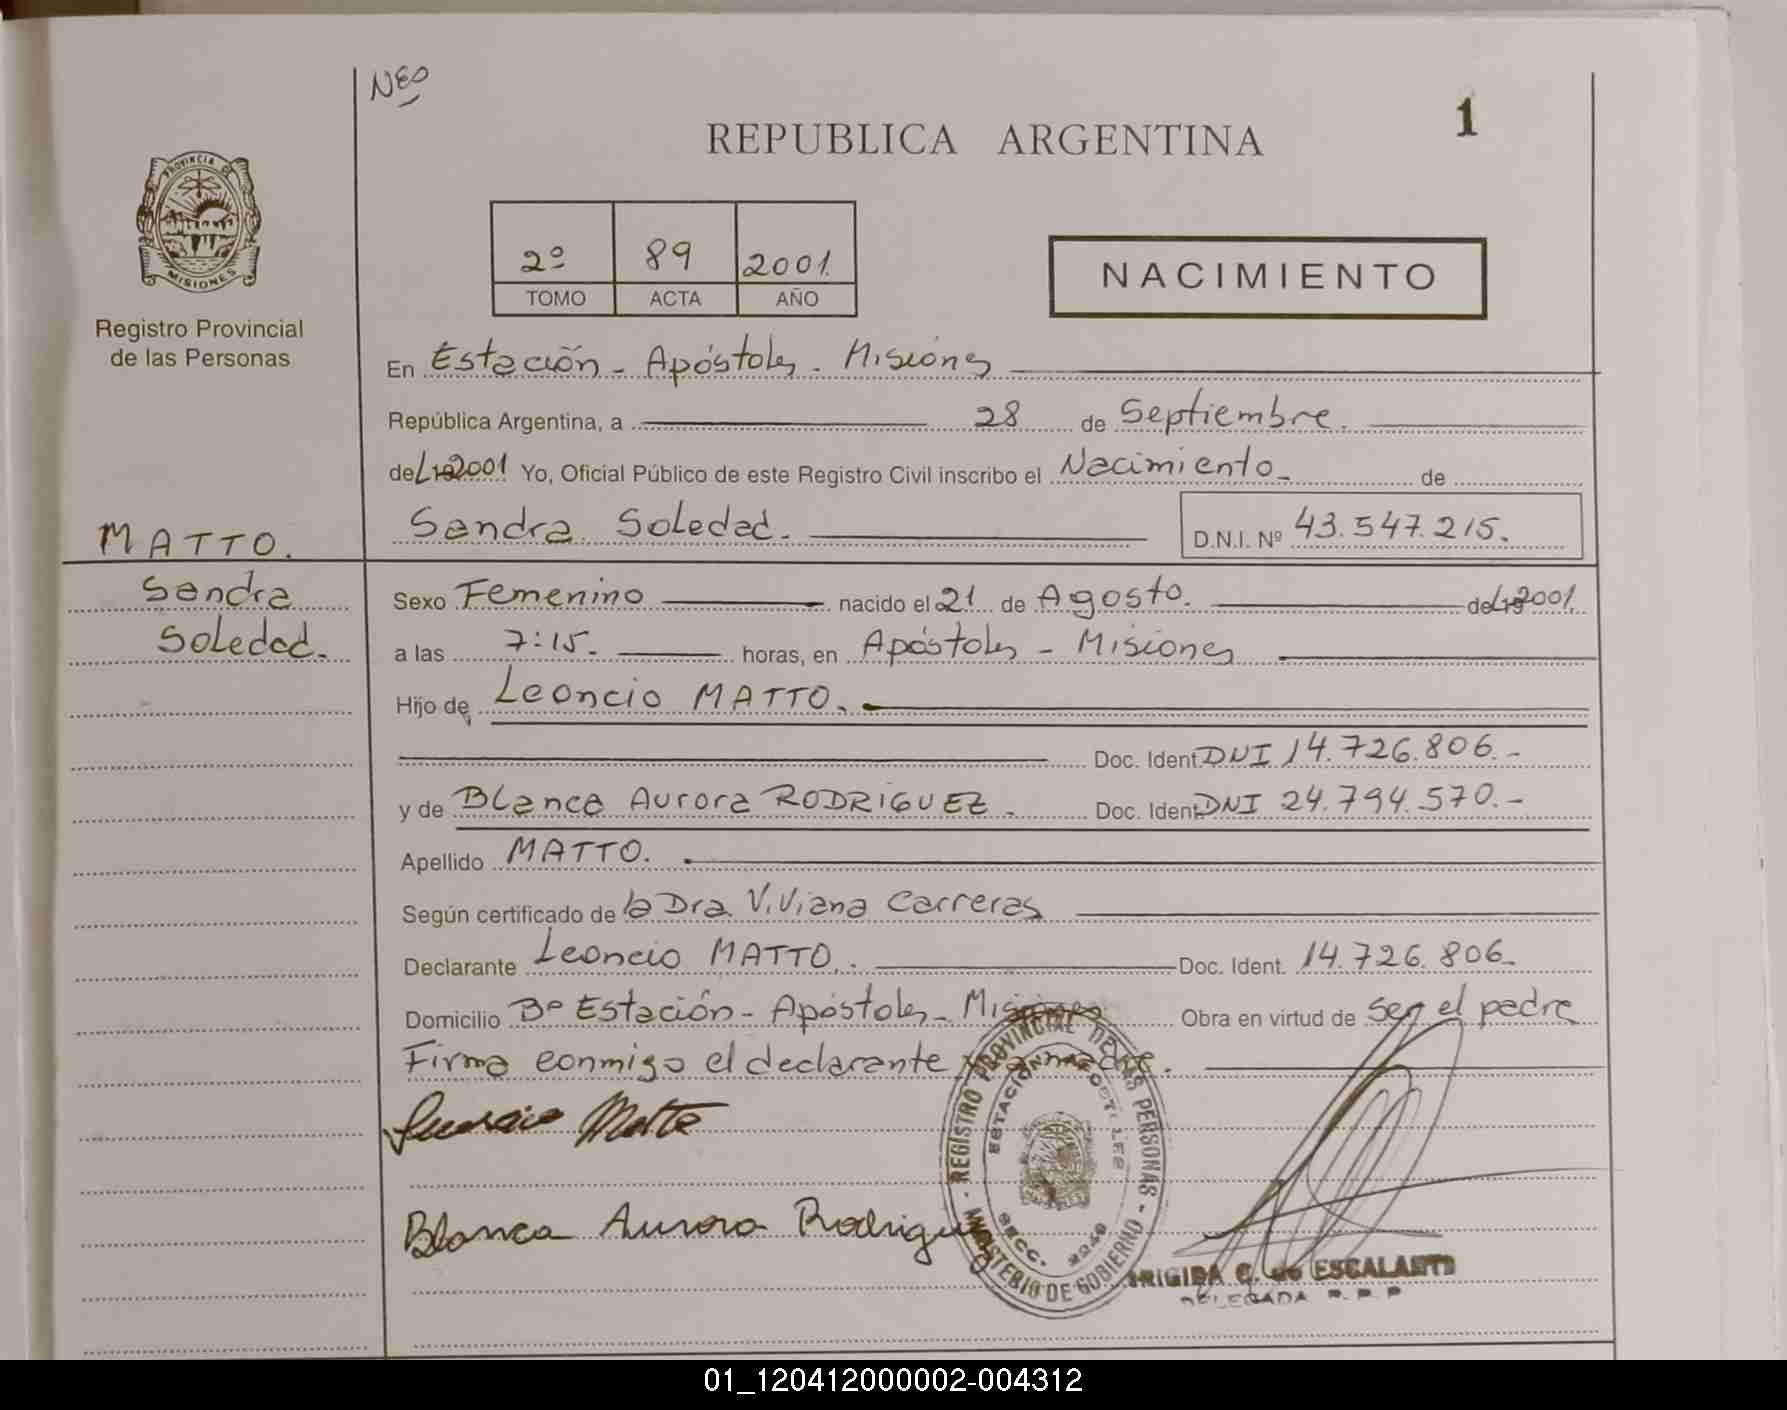 NEO
1
REPUBLICA ARGENTINA
PROVINCIA DE
MISIONES
Registro Provincial
de las Personas
2º 89 2001.
TOMO ACTA AÑO
NACIMIENTO
En Estación - Apóstoles - Misiones
República Argentina, a 28 de Septiembre.
de L 19 2001 Yo, Oficial Público de este Registro Civil inscribo el Nacimiento - de
Sandra Soledad. D.N.I. Nº 43.547.215.
MATTO.
Sandra
Soledad.
Sexo Femenino nacido el 21 de Agosto. de L 19 2001.
a las 7:15. horas, en Apóstoles - Misiones
Hijo de Leoncio MATTO.
Doc. Ident. DNI 14.726.806.-
y de Blanca Aurora RODRIGUEZ - Doc. Ident. DNI 24.794.570.-
Apellido MATTO.
Según certificado de la Dra. Viviana Carreras
Declarante Leoncio MATTO. Doc. Ident. 14.726.806.
Domicilio Bº Estación - Apóstoles - Misiones Obra en virtud de ser el padre
Firma conmigo el declarante y madre.
Leoncio Matto
Blanca Aurora Rodriguez
REGISTRO PROVINCIAL DE LAS PERSONAS - MINISTERIO DE GOBIERNO -
ESTACIÓN APOSTOLES
SECC.
BRIGIDA C. de ESCALANTE
DELEGADA R. P. P.
01_120412000002-004312